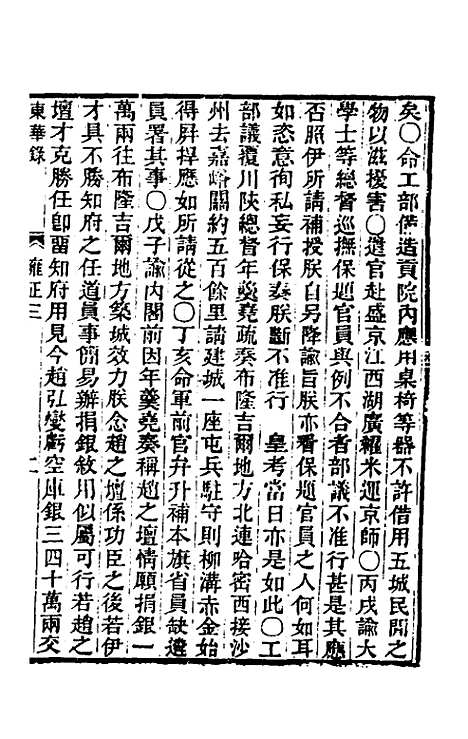 矣○命工部備造貢院內應用桌椅等器不許借用五城民間之
物以滋擾害○遣官赴盛京江西湖廣糴米運京師○丙戌諭大
學士等總督巡撫保題官員與例不合者部議不准行甚是其應
否照伊所請補授朕自另降諭旨朕亦看保題官員之人何如耳
如恣意徇私妄行保奏朕斷不准行　皇考當日亦是如此○工
部議覆川陝總督年羹堯疏奏布隆吉爾地方北連哈密西接沙
州去嘉峪關約五百餘里請建城一座屯兵駐守則柳溝赤金始
得屛捍應如所請從之○丁亥命軍前官弁升補本旗省員缺遣
員署其事○戊子諭內閣前因年羹堯奏稱趙之壇情願捐銀一
萬兩往布隆吉爾地方築城效力朕念趙之壇係功臣之後若伊
才具不勝知府之任道員事簡易辦捐銀敘用似屬可行若趙之
壇才克勝任卽留知府用見今趙弘燮虧空庫銀三四十萬兩交
東華錄
雍正三